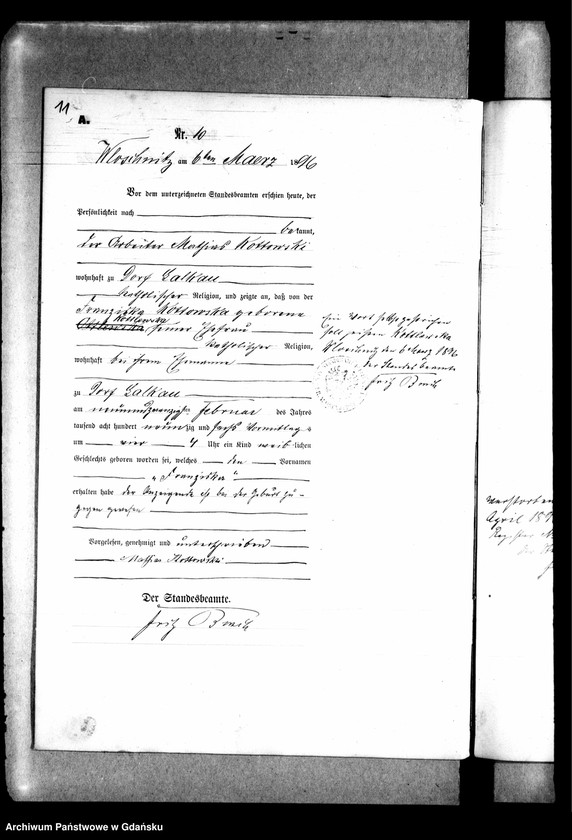 11
A.
Nr. 10
am 6ten Maerz 1896
Vor dem unterzeichneten Standesbeamten erschien heute, der
Persönlichkeit nach
bekannt,
der Arbeiter Mathias Kottowski
wohnhaft zu Dorf Lalkau
katholischer Religion, und zeigte an, daß von der
Franziska Kottowska geborene
seiner Ehefrau
katholischer Religion,
wohnhaft bei ihrem Ehemanne
zu Dorf Lalkau
am neunundzwanzigsten Februar des Jahres
tausend acht hundert neunzig und sechs Vormittags
um vier 4 Uhr ein Kind weiblichen
Geschlechts geboren worden sei, welches den Vornamen
„Franziska"
erhalten habe der Anzeigende ist bei der Geburt zu-
gegen gewesen
Vorgelesen, genehmigt und unterschrieben
Mathias Kottowski
Der Standesbeamte.
Fritz
Ein Wort
soll heißen Kottlowska
den 6 Maerz 1896
der Standesbeamte
Fritz
verstorben
April 189
Register N
Archiwum Państwowe w Gdańsku